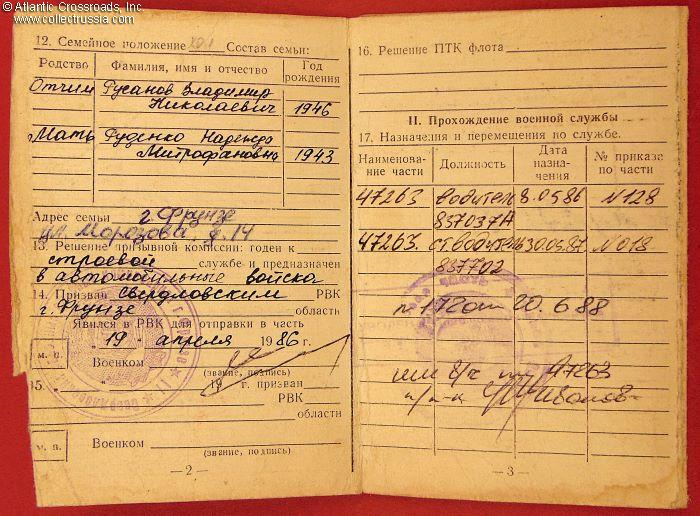 © Atlantic Crossroads, Inc.
www.collectrussia.com
12. Семейное положение хол Состав семьи:
Родство Фамилия, имя и отчество Год рождения
Отчим Русанов Владимир
Николаевич 1946
Мать Руденко Надежда
Митрофановна 1943
Адрес семьи г. Фрунзе
ул. Морозова д. 14
13. Решение призывной комиссии: годен к
строевой службе и предназначен
в автомобильные войска
14. Призван Свердловским РВК
г. Фрунзе область
Явился в РВК для отправки в часть
"19" апреля 1986 г.
м. п. Военком
(звание, подпись)
15. 19 г. призван
РВК
области
м. п. Военком
(звание, подпись)
—2—
16. Решение ПТК флота
II. Прохождение военной службы
17. Назначения и перемещения по службе.
Наименование части Должность Дата назначения № приказа по части
47263 водитель 8.05.86 №128
837037А
47263. ст. водитель 30.05.87 №018
837702
от 20.6.88
47263
п/п-к Иванов
—3—